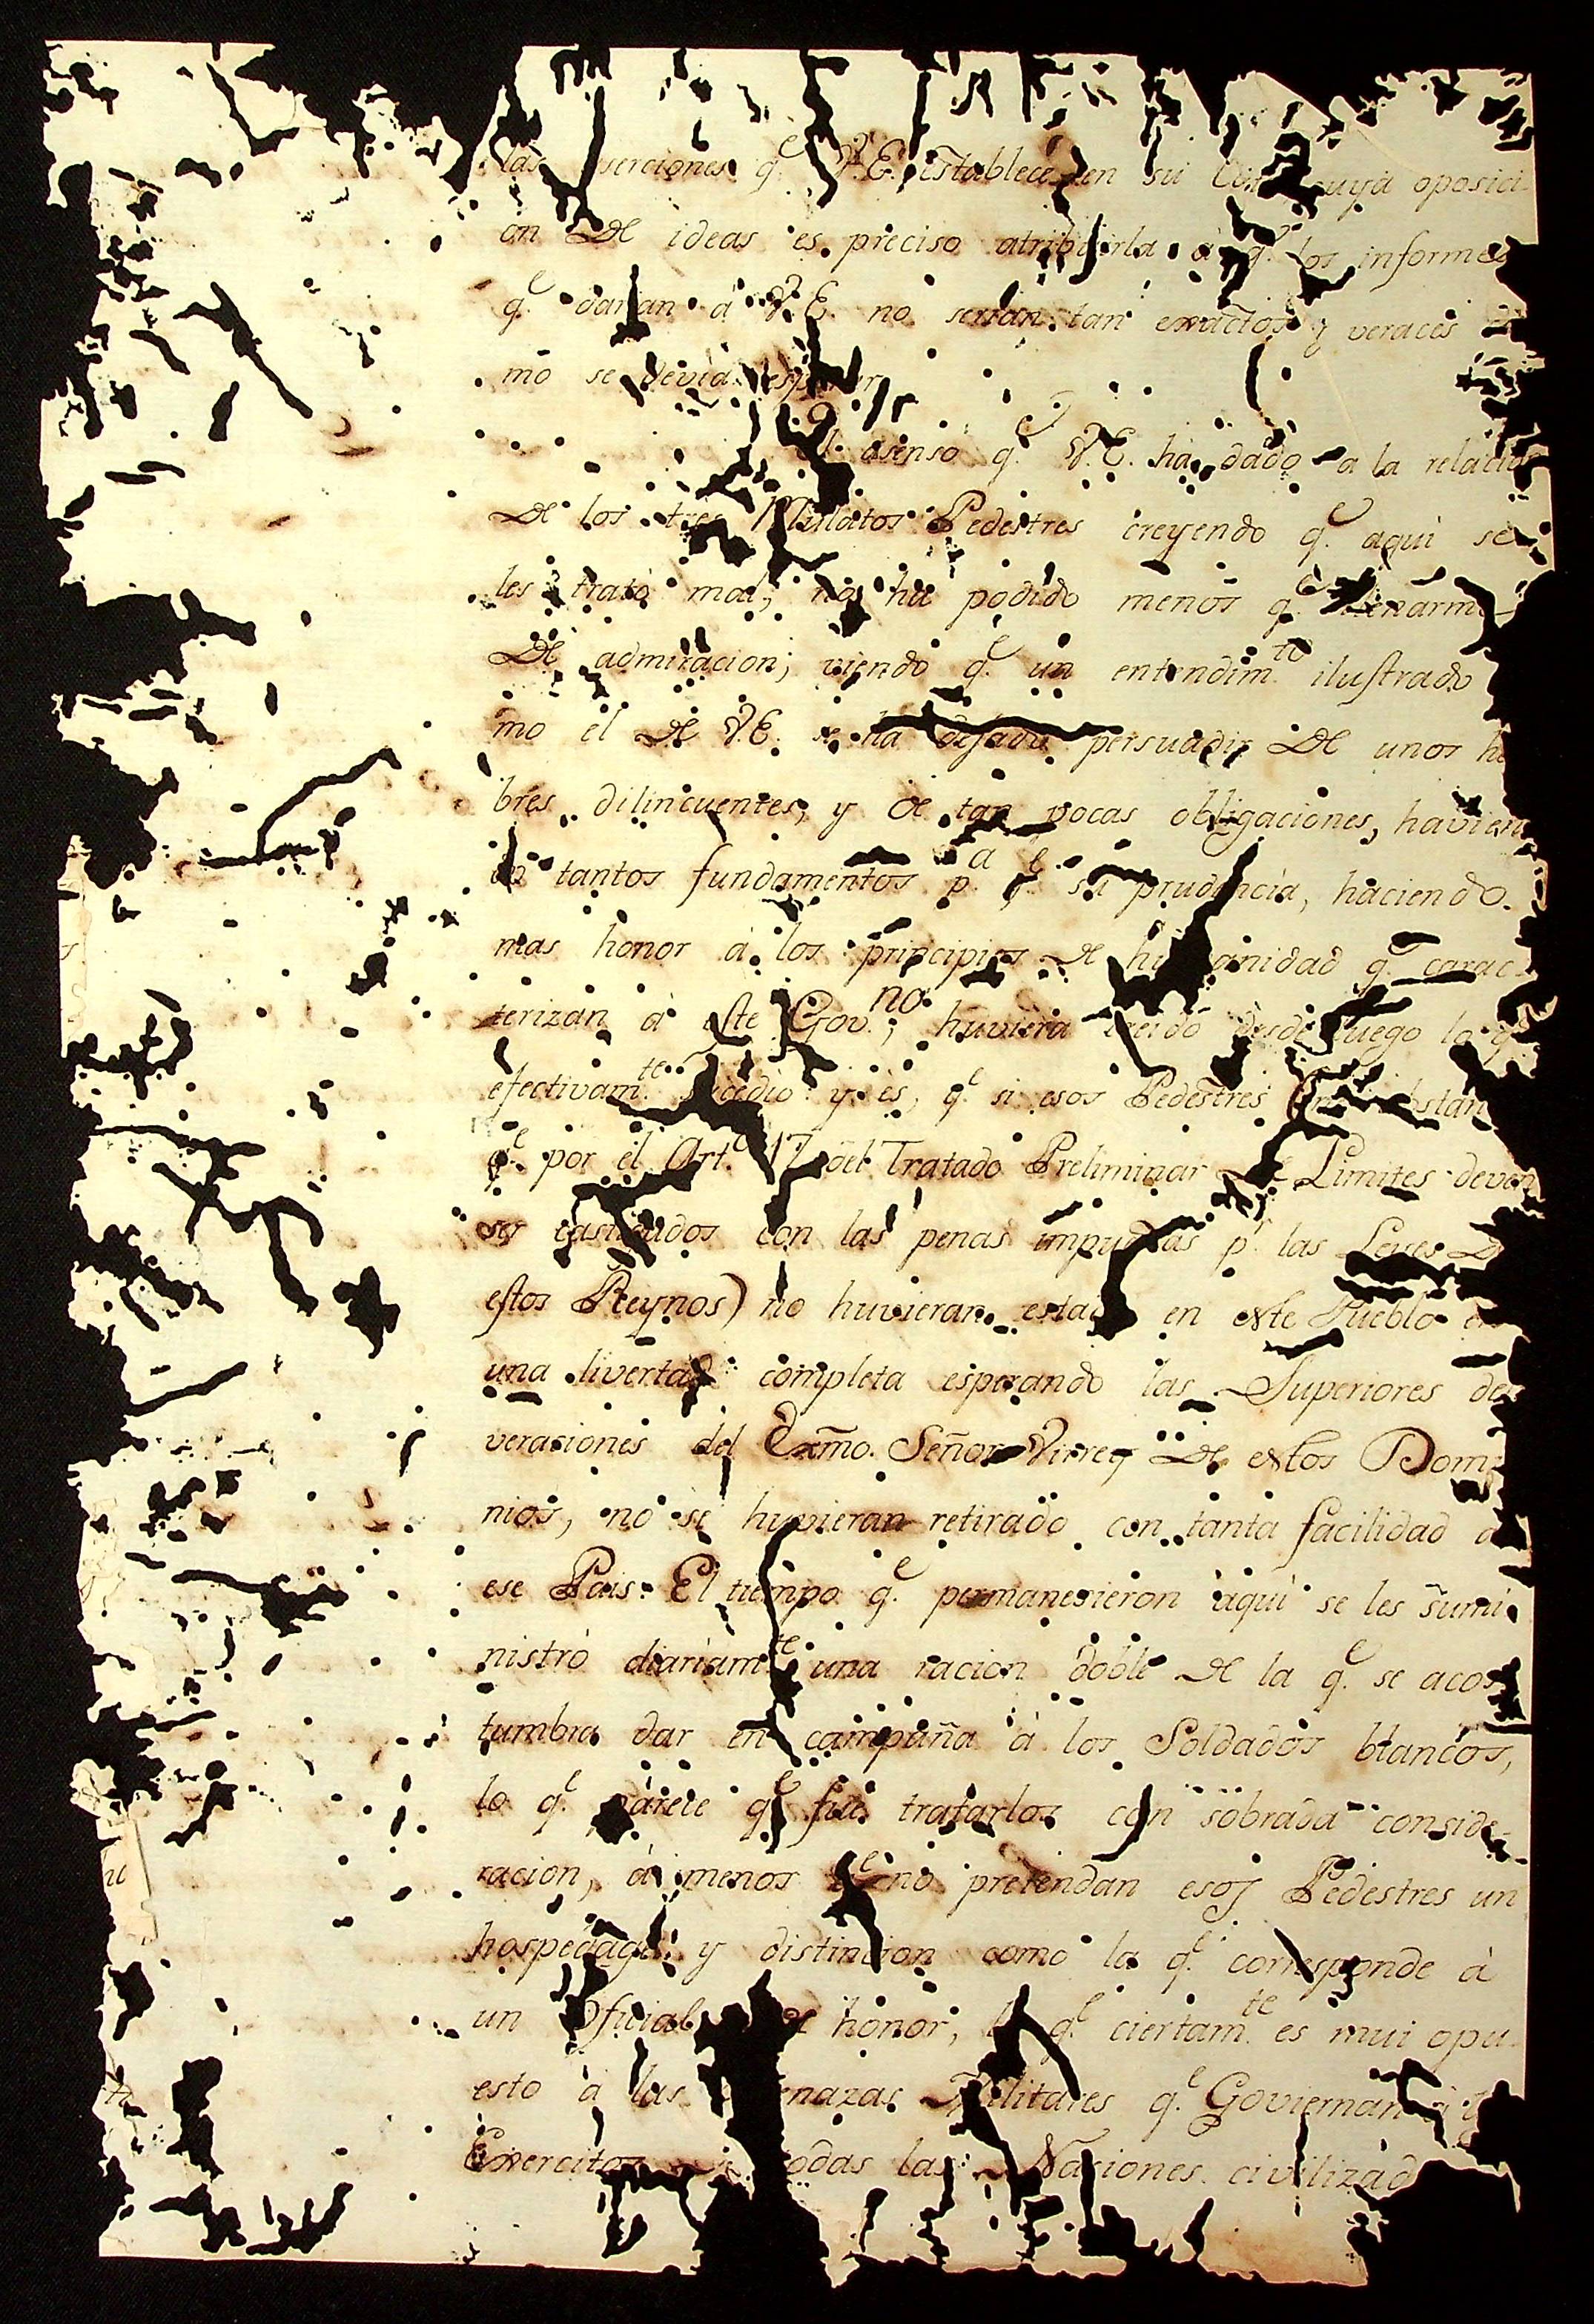 las serciones q.e V.E. establece en su uya oposici
on de ideas es preciso atribuirla à q.e los informes
q.e darian à V.E. no serian tan exactos y veraces
mo se devia esp
el asenso q.e V.E. ha dado a la relacion
de los tres Mulatos Pedestres creyendo q.e aqui se
les trató mal, no ha podido menos q.e llenarme
de admiracion; viendo q.e un entendim.to ilustrado
mo el de V.E. se ha dejado persuadir de unos ho
bres dilincuentes, y de tan pocas obligaciones, havien
tantos fundamentos p.a q.e su prudencia, haciendo
mas honor à los principios de humanidad q.e carac
terizan à este Gov.no, huviera creido desde luego lo q.e
efectivam.te sucedio y es, q.e si esos Pedestres
q.e por el Art.o 17 del Tratado Preliminar de Limites deven
ser castigados con las penas impuestas p.r las Leyes de
estos Reynos) no huvieran estado en este Pueblo en
una livertad completa esperando las Superiores de
veraciones del Exmo. Señor Virrey de estos Domi
nios, no se huvieran retirado con tanta facilidad a
ese Pais. El tiempo q.e permanesieron aqui se les sumi
nistró diariam.te una racion doble de la q.e se acos
tumbra dar en campaña à los Soldados blancos,
lo q.e parece q.e fue tratarlos con sobrada conside
racion, à menos q.e no pretendan esos Pedestres un
hospedage y distincion como la q.e corresponde à
un Oficial de honor, lo q.e ciertam.te es mui opu
esto à las enazas Militares q.e Goviernan
Exercitos todas las Nasiones civilizad